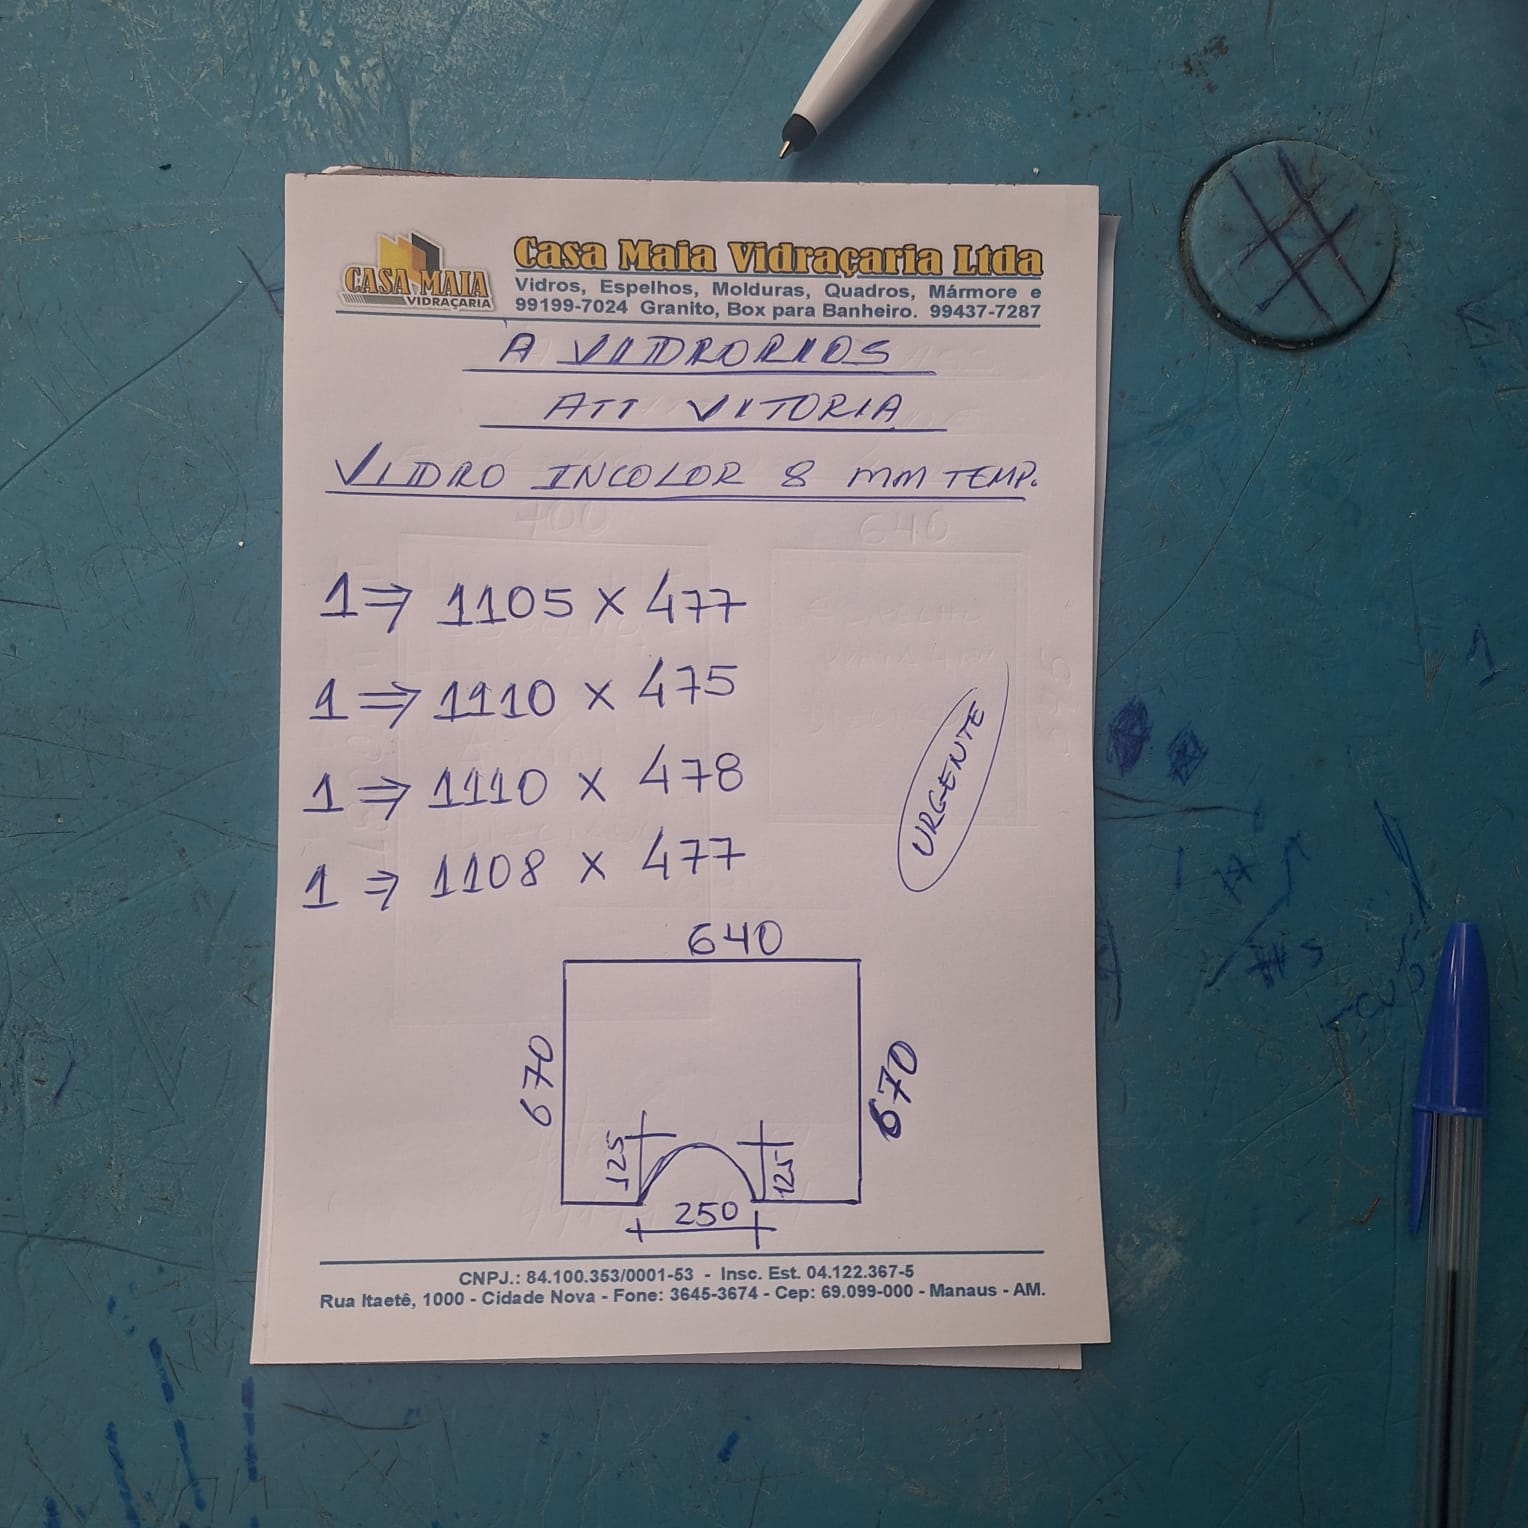 CASA MAIA
VIDRAÇARIA
Casa Maia Vidraçaria Ltda
Vidros, Espelhos, Molduras, Quadros, Mármore e
99199-7024 Granito, Box para Banheiro. 99437-7287
A VIDRORIOS
ATT VITORIA
VIDRO INCOLOR 8 MM TEMP.
1 ⇒ 1105 x 477
1 ⇒ 1110 x 475
1 ⇒ 1110 x 478
1 ⇒ 1108 x 477
URGENTE
640
670
670
125
125
250
CNPJ.: 84.100.353/0001-53 - Insc. Est. 04.122.367-5
Rua Itaetê, 1000 - Cidade Nova - Fone: 3645-3674 - Cep: 69.099-000 - Manaus - AM.